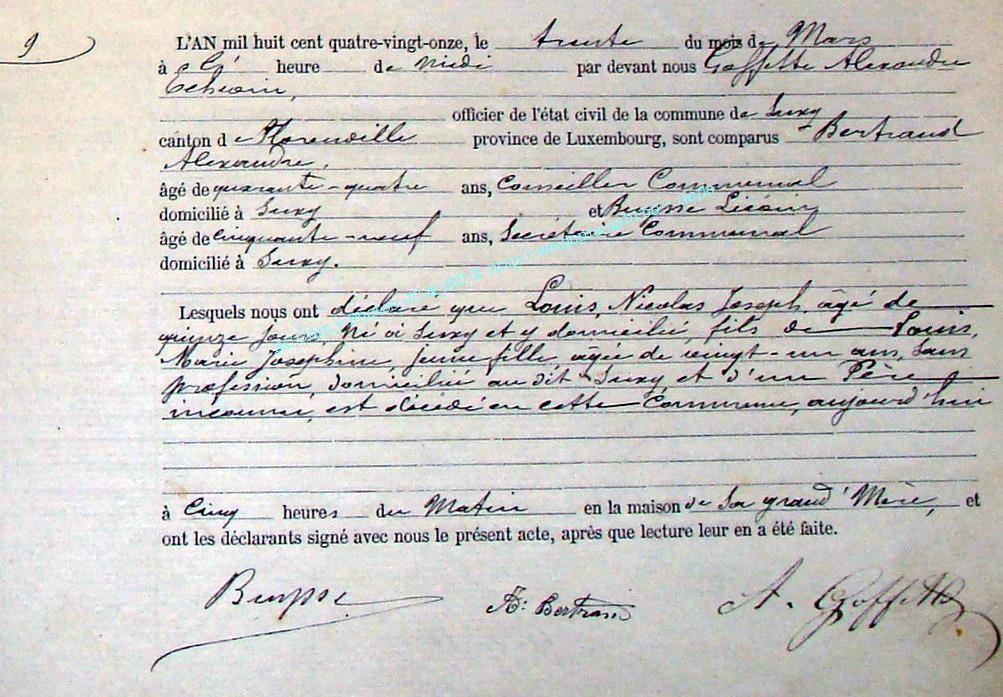 9
L'AN mil huit cent quatre-vingt-onze, le trente du mois de Mars
à heure de Midi par devant nous Goffette Alexandre
officier de l'état civil de la commune de Suxy
canton de Florenville province de Luxembourg, sont comparus Bertrand
Alexandre,
âgé de quarante-quatre ans, Conseiller Communal
domicilié à Suxy et Buysse
âgé de cinquante-neuf ans, Secrétaire Communal
domicilié à Suxy.
Lesquels nous ont déclaré que Louis, Nicolas Joseph, âgé de
quinze jours, né à Suxy et y domicilié, fils de Louis,
Marie Josephine, jeune fille, âgée de vingt-un ans, sans
profession, domiciliée au dit Suxy, et d'un Père
inconnu, est décédé en cette Commune, aujourd'hui
à Cinq heures du Matin en la maison de sa grand'Mère, et
ont les déclarants signé avec nous le présent acte, après que lecture leur en a été faite.
Buysse A: Bertrand A. Goffette